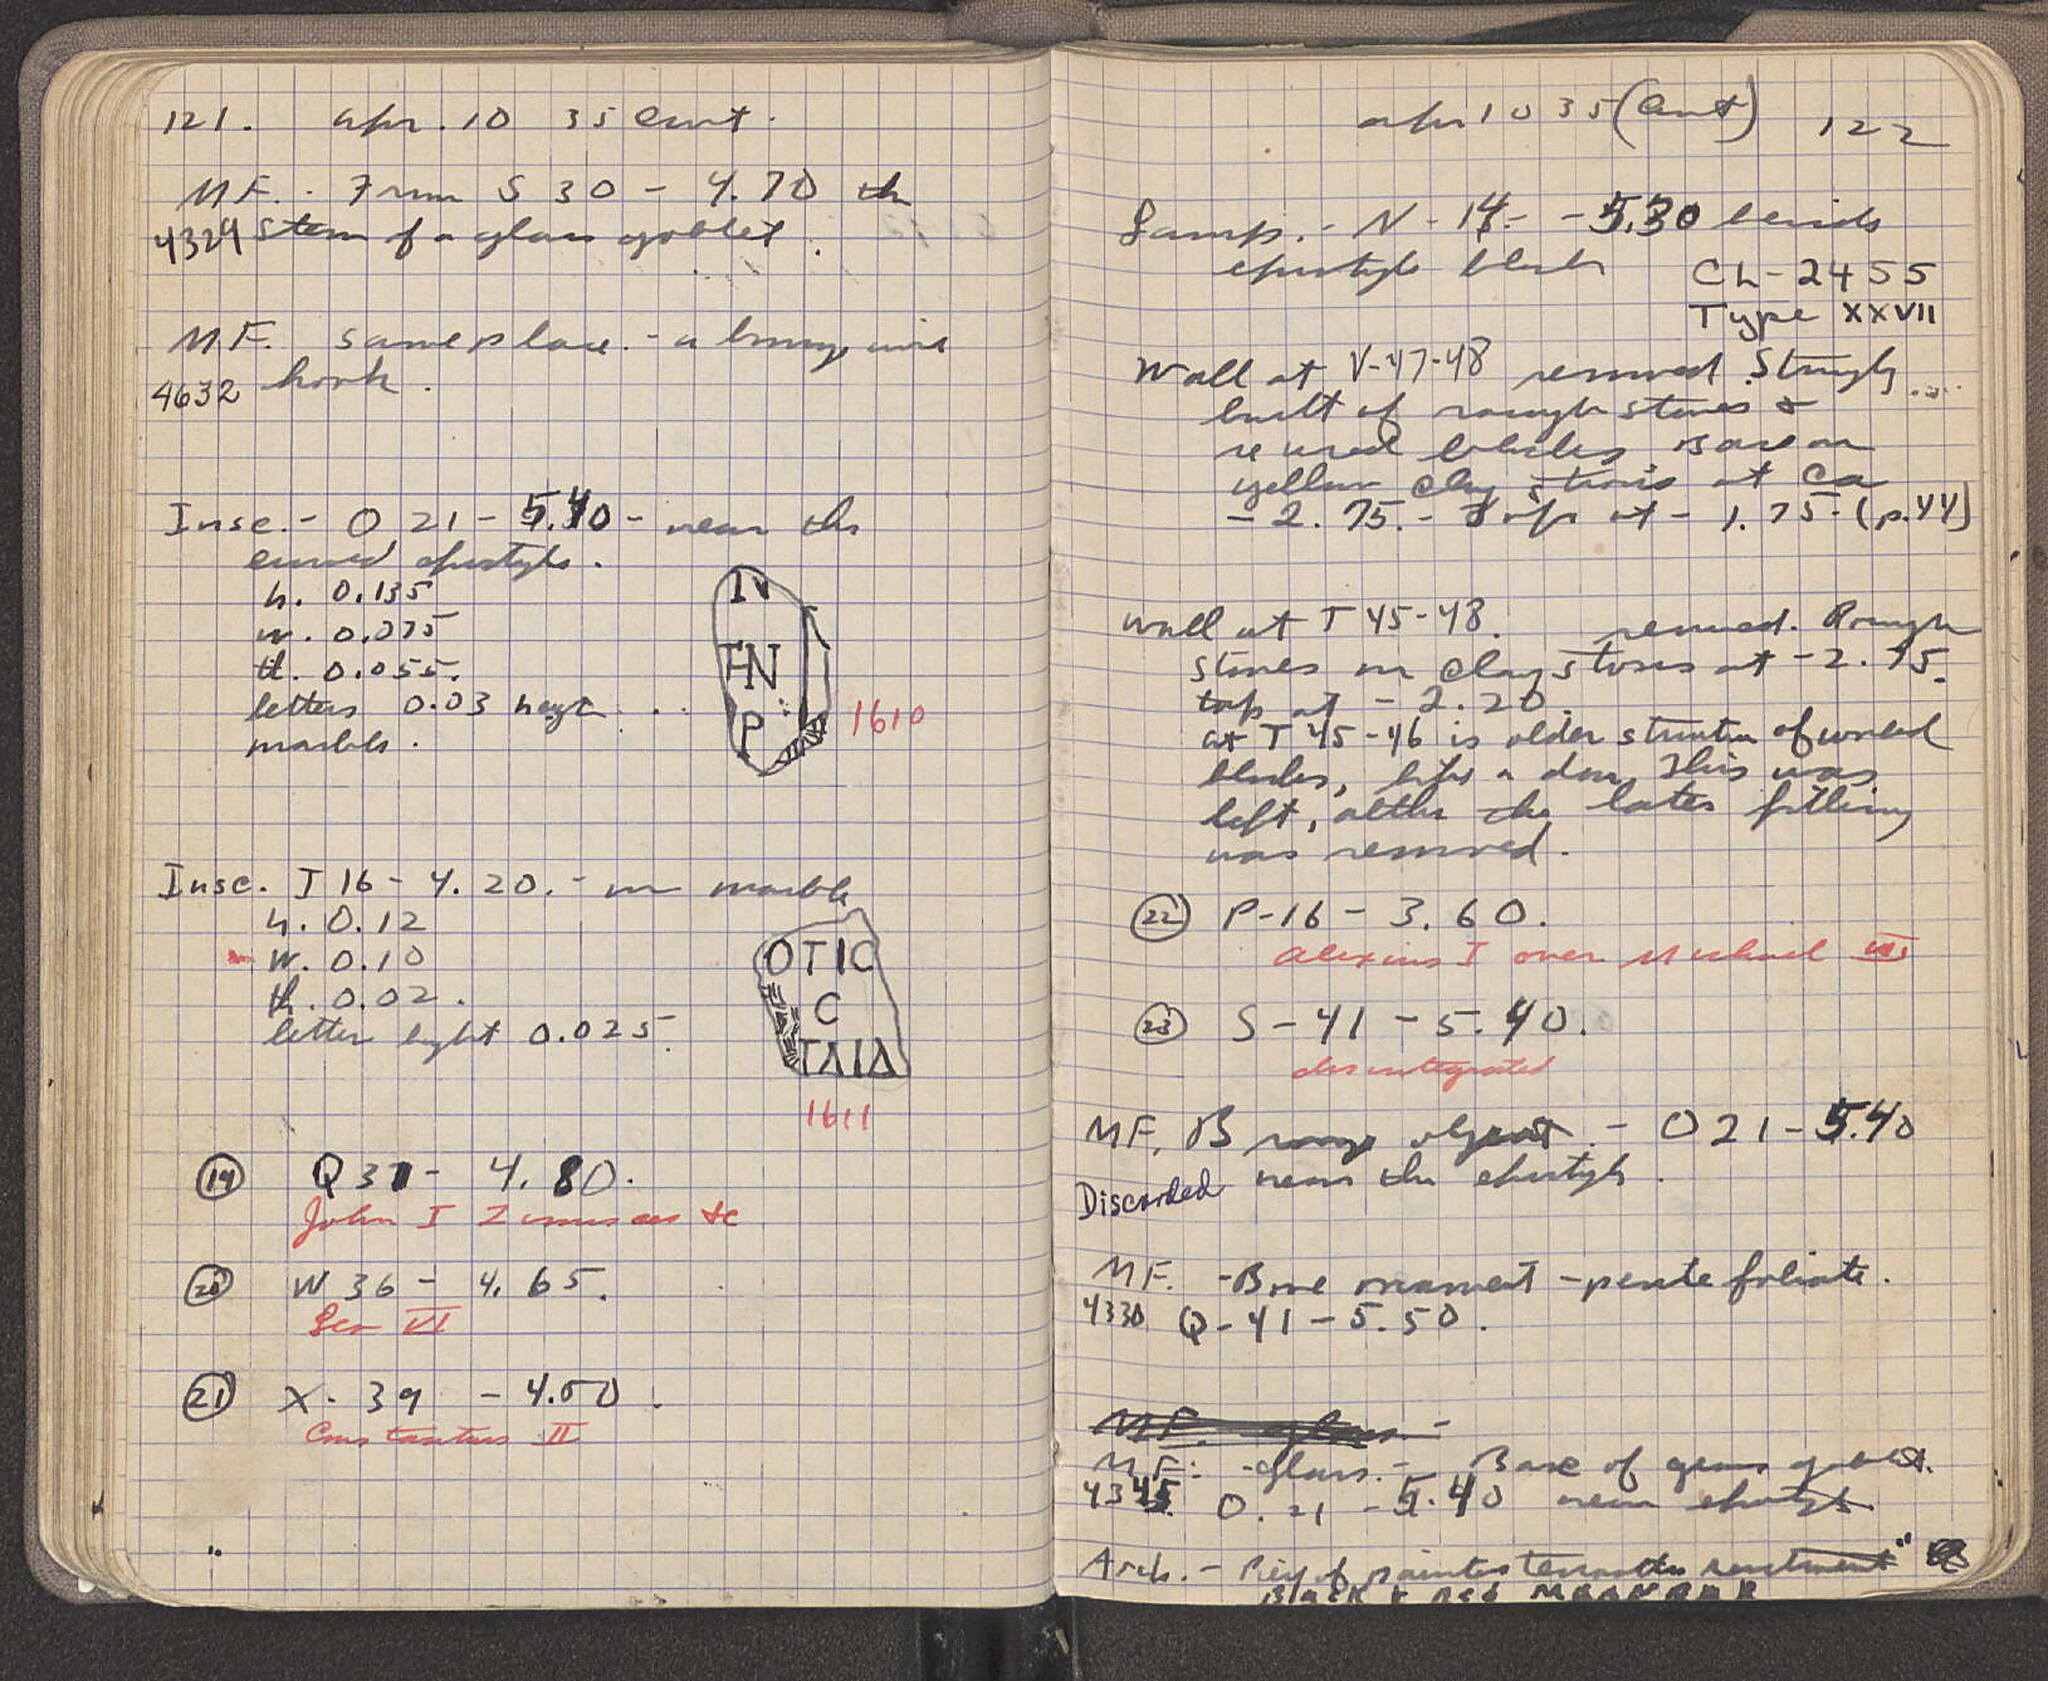 121. Apr. 10 35 Cont.
MF. - From S 30 - 4.70 the
4329 stem of a glass goblet.
MF. same place. - a bronze wire
4632 hook.
Insc. - O 21 - 5.40 - near the
curved epistyle.
h. 0.135
w. 0.075
th. 0.055.
letters 0.03 height
marble.
N
HN
P
1610
Insc. I 16 - 4.20. - on marble
h. 0.12
w. 0.10
th. 0.02.
letter height 0.025.
OTIC
C
TAIA
1611
19 Q 37 - 4.80.
John I Zimisces &c
20 W 36 - 4.65.
Leo VI
21 X - 39 - 4.50.
Constantius II
Apr 10 35 (Cont) 122
Lamp. - N - 14 - - 5.30 beside
epistyle block
CL-2455
Type XXVII
Wall at V-47-48 removed. Strongly
built of rough stones &
reused blocks Base on
yellow clay strosis at ca
- 2.75. - Top at - 1.75 - (p.44)
Wall at T 45-48. removed. Rough
stones on clay strosis at - 2.75.
top at - 2.20.
at T 45-46 is older structure of worked
blocks, like a door, This was
left, after the later filling
was removed.
22 P-16 - 3.60.
Alexius I over Michael VII
23 S - 41 - 5.40.
disintegrated
MF. Bronze object. - O 21 - 5.40
Discarded near the epistyle.
MF. - Bone ornament - pente foliate.
4330 Q - 41 - 5.50.
MF. glass -
MF. - Glass. - Base of glass goblet.
4345. O. 21 - 5.40 near epistyle
Arch. - Piece of painted terracotta revetment"
BLACK & RED MEANDER